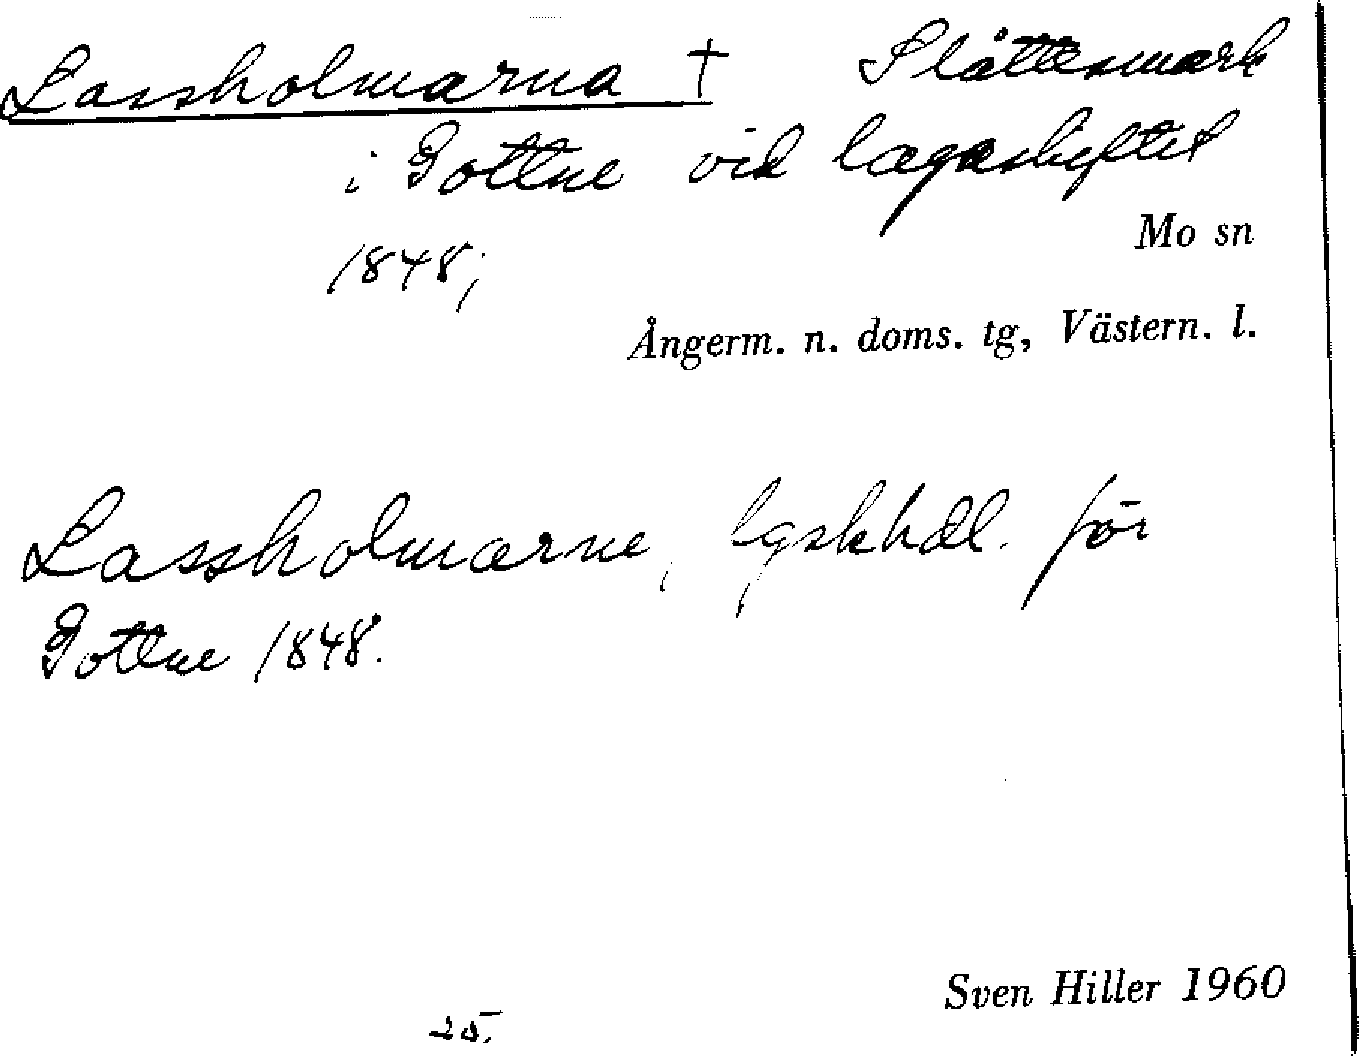 Lassholmarna † Slåttesmark
i Gottne vid lagaskiftet
1848;
Mo sn
Ångerm. n. doms. tg, Västern. l.
Lassholmarne, lgskhdl. för
Gottne 1848.
Sven Hiller 1960
25.